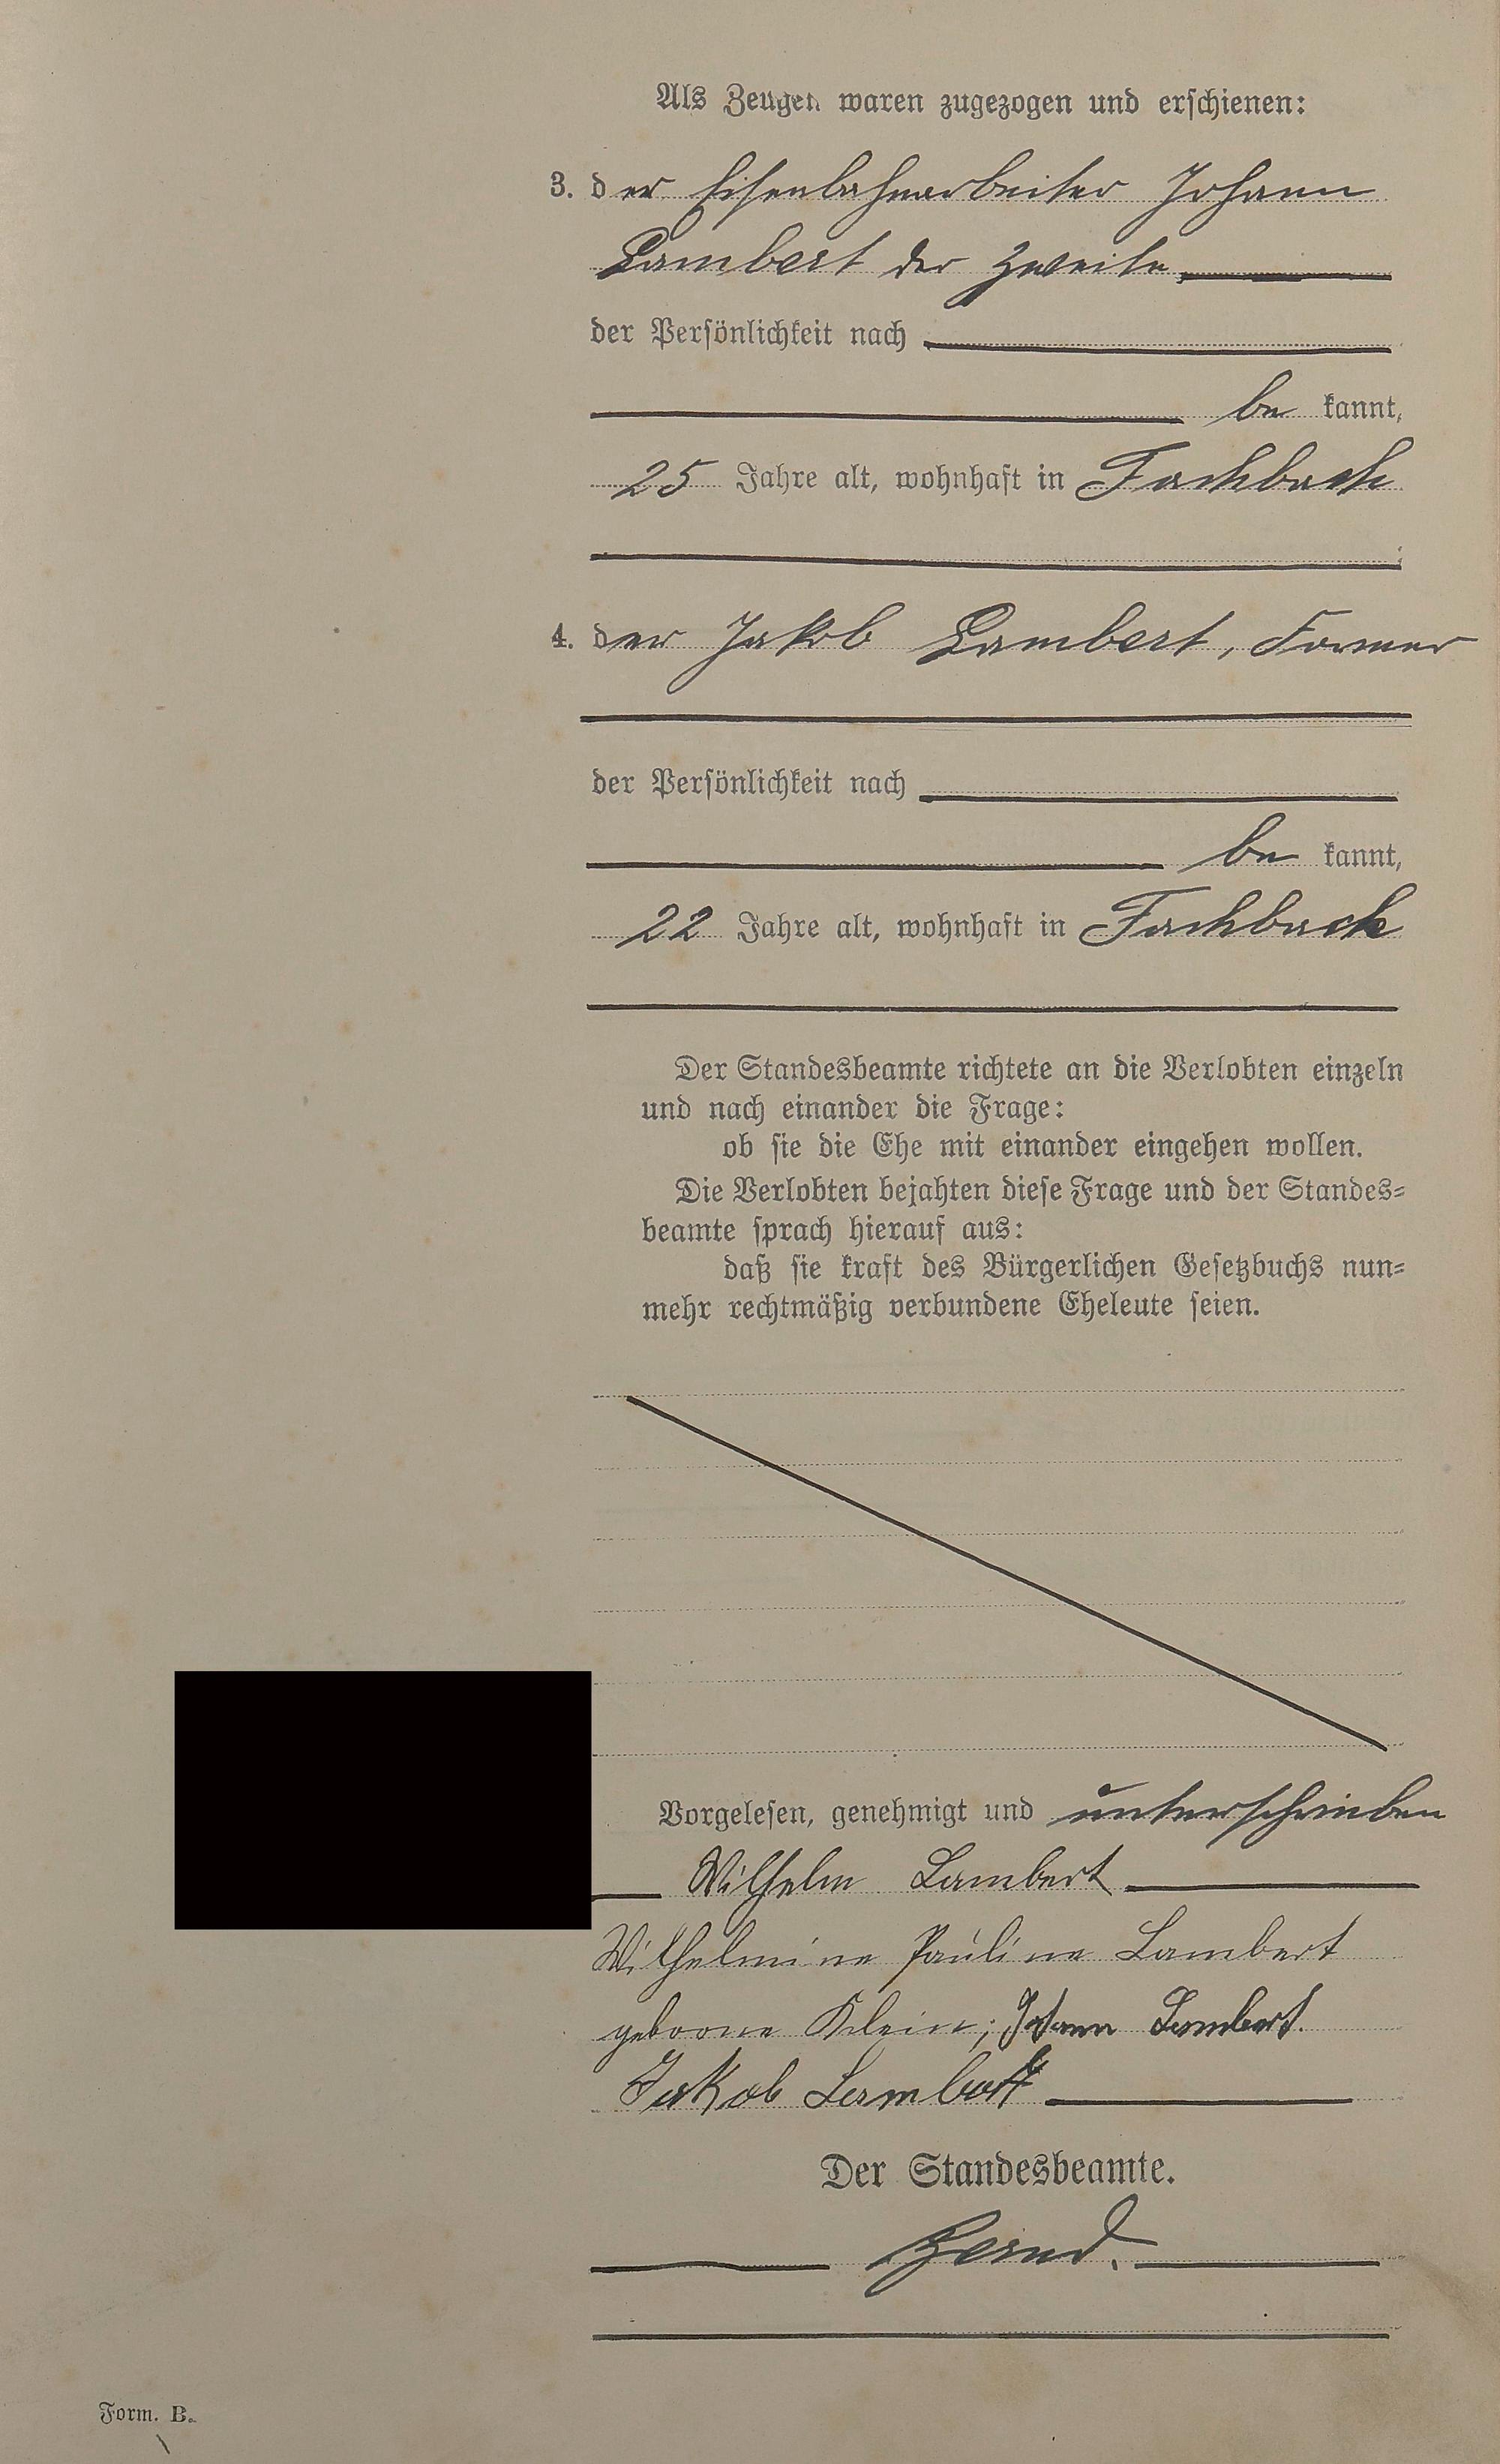 Als Zeugen waren zugezogen und erschienen:
3. der Eisenbahnarbeiter Johann
Lambert der Zweite
der Persönlichkeit nach
be kannt,
25 Jahre alt, wohnhaft in Fachbach
4. der Jakob Lambert, Former
der Persönlichkeit nach
be kannt,
22 Jahre alt, wohnhaft in Fachbach
Der Standesbeamte richtete an die Verlobten einzeln
und nach einander die Frage:
ob sie die Ehe mit einander eingehen wollen.
Die Verlobten bejahten diese Frage und der Standes-
beamte sprach hierauf aus:
daß sie kraft des Bürgerlichen Gesetzbuchs nun-
mehr rechtmäßig verbundene Eheleute seien.
Vorgelesen, genehmigt und unterschrieben
Wilhelm Lambert
Wilhelmine Pauline Lambert
geborne Klein; Johann Lambert.
Jakob Lambert
Der Standesbeamte.
Form. B.